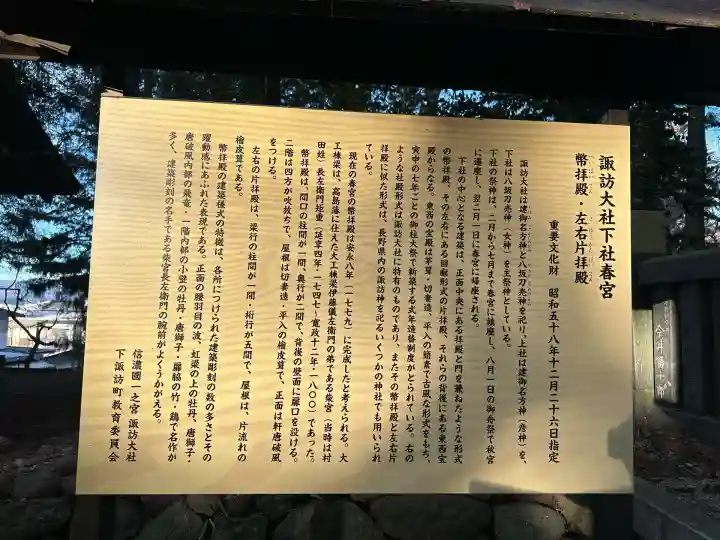 諏訪大社下社春宮
幣拝殿・左右片拝殿
重要文化財　昭和五十八年十二月二十六日指定
諏訪大社は建御名方神と八坂刀売神を祀り、上社は建御名方神(彦神)を、
下社は八坂刀売神(女神)を主祭神としている。
下社の祭神は、二月から七月まで春宮に鎮座し、八月一日の御舟祭で秋宮
に遷座し、翌二月一日に春宮に帰座される。
下社の中心となる建築は、正面中央にある拝殿と門を兼ねたような形式
の幣拝殿、その左右にある回廊形式の片拝殿、それらの背後にある東西宝
殿からなる。東西の宝殿は茅葺・切妻造、平入の簡素で古風な形式をもち、
寅申の七年ごとの御柱大祭で新築する式年造替制度がとられている。右の
ような社殿形式は諏訪大社に特有のものであり、またその幣拝殿と左右片
拝殿に似た形式は、長野県内の諏訪神を祀るいくつかの神社でも用いられ
ている。
現在の春宮の幣拝殿は安永八年(一七七九)に完成したと考えられる。大
工棟梁は、高島藩に仕えた大工棟梁伊藤儀左衛門の弟である柴宮(当時は村
田姓)長左衛門矩重(延享四年・一七四七〜寛政十二年・一八〇〇)であった。
幣拝殿は、間口の柱間が一間、奥行が二間で、背後の壁面に扉口を設ける。
二階は四方が吹放ちで、屋根は切妻造・平入の檜皮葺で、正面は軒唐破風
をつける。
左右の片拝殿は、梁行の柱間が一間・桁行が五間で、屋根は、片流れの
檜皮葺である。
幣拝殿の建築様式の特徴は、各所につけられた建築彫刻の数の多さとその
躍動感にあふれた表現である。正面の腰羽目の波、虹梁の上の牡丹、唐獅子・
唐破風内部の飛竜・一階内部の小壁の牡丹・唐獅子・扉脇の竹・鶏で名作が
多く、建築彫刻の名手である柴宮長左衛門の腕前がよくうかがえる。
信濃國一之宮 諏訪大社
下諏訪町教育委員会